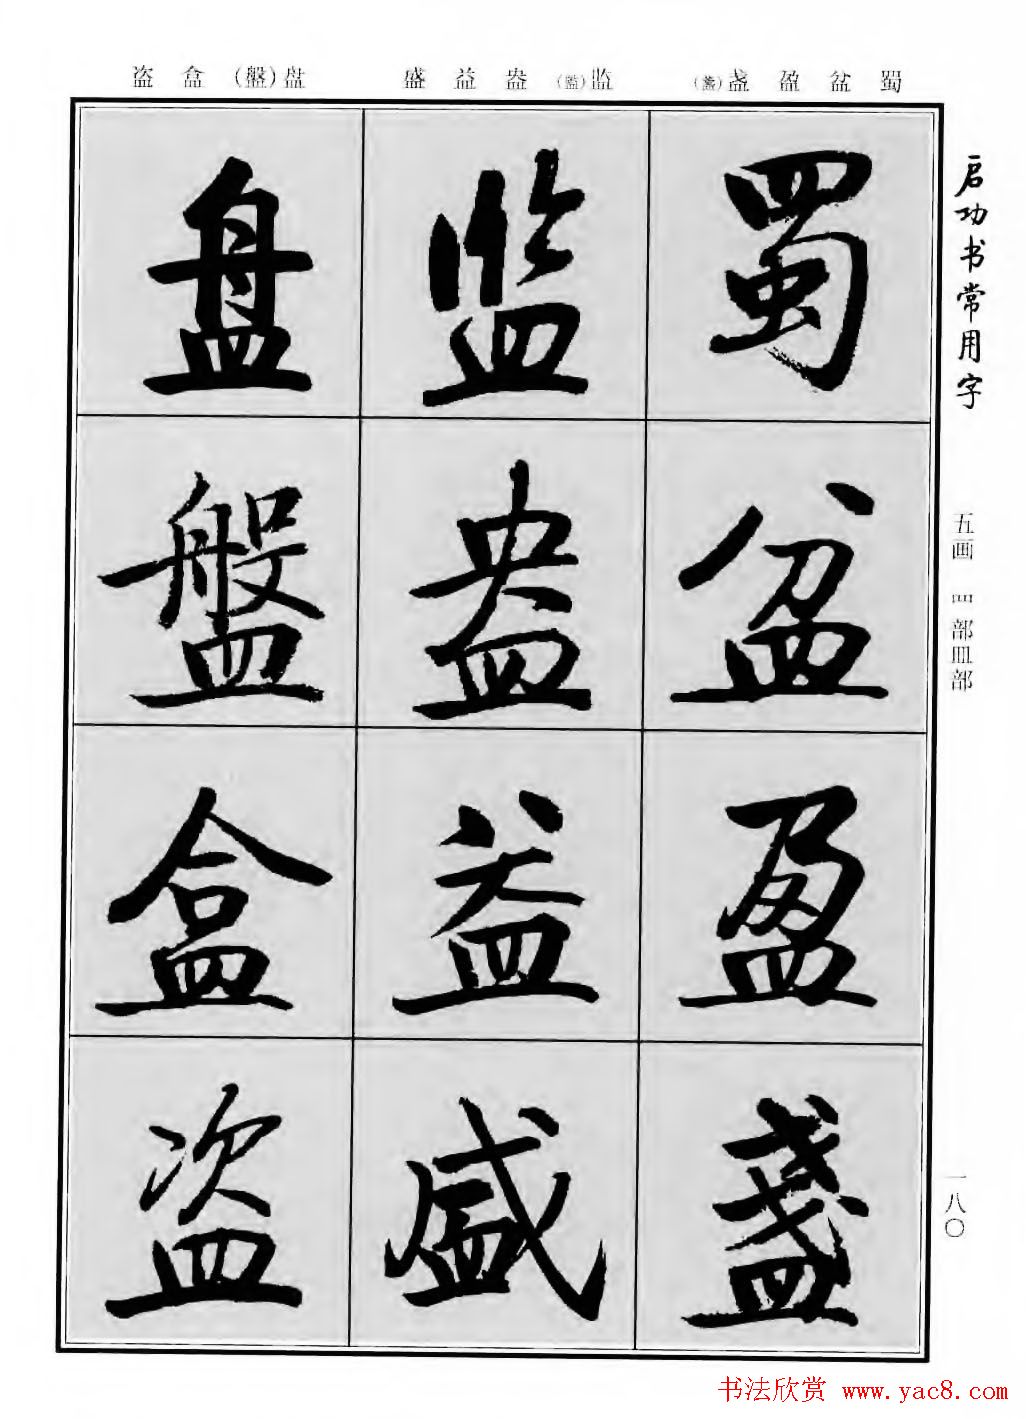 盗 盒 (盤)盘 盛 益 盎 (監)监 (盞)盏 盈 盆 蜀
启功书常用字
五画 罒部皿部
一八〇
蜀 盆 盈 盞
监 盎 益 盛
盘 盤 盒 盗
书法欣赏 www.yac8.com